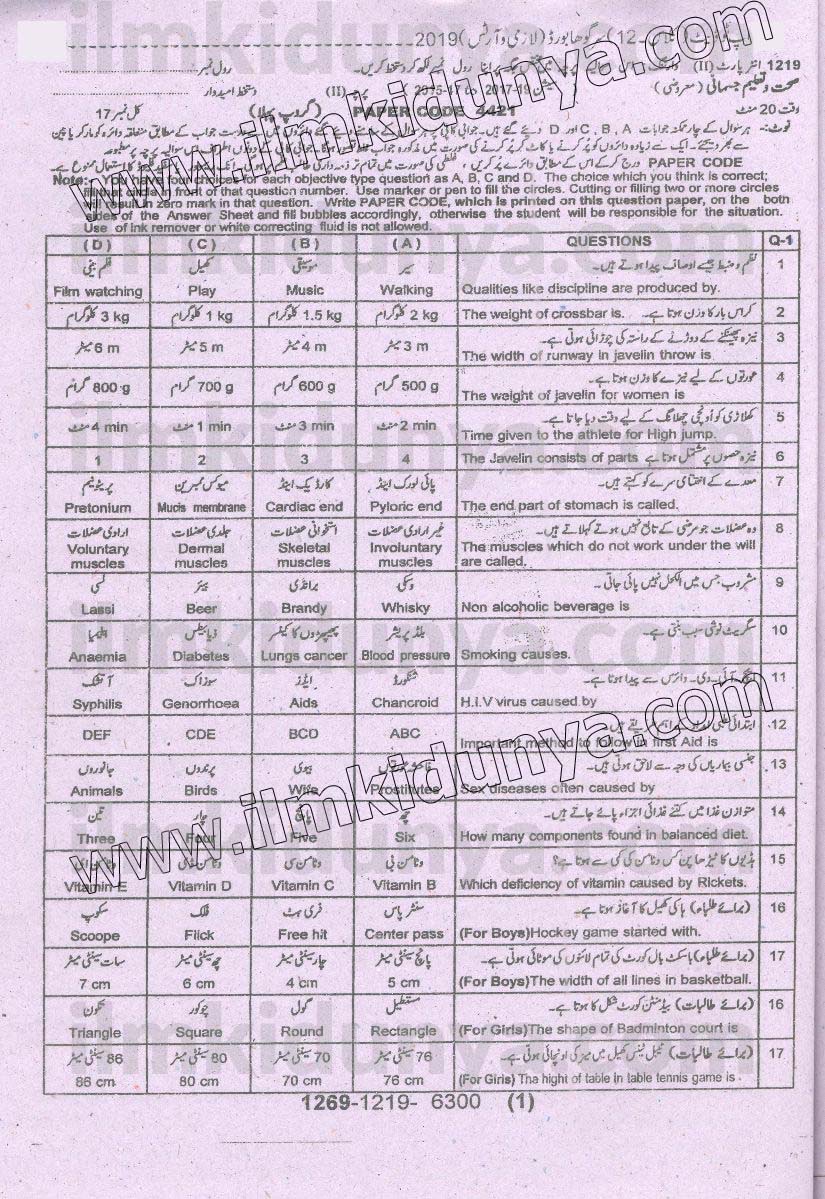 2019 (لازمی و آرٹس)
1219 انٹر پارٹ (II)
رول نمبر
صحت و تعلیم جسمانی (معروضی)
دستخط امیدوار
وقت 20 منٹ
PAPER CODE 4421
(گروپ پہلا)
کل نمبر 17
Note:- You have four choices for each objective type question as A, B, C and D. The choice which you think is correct;
fill that circle in front of that question number. Use marker or pen to fill the circles. Cutting or filling two or more circles
will result in zero mark in that question. Write PAPER CODE, which is printed on this question paper, on the both
sides of the Answer Sheet and fill bubbles accordingly, otherwise the student will be responsible for the situation.
Use of ink remover or white correcting fluid is not allowed.
(D) (C) (B) (A) QUESTIONS Q-1
فلم بینی کھیل موسیقی سیر نظم و ضبط جیسے اوصاف پیدا ہوتے ہیں۔ 1
Film watching Play Music Walking Qualities like discipline are produced by.
3 kg کلوگرام 1 kg کلوگرام 1.5 kg کلوگرام 2 kg کلوگرام The weight of crossbar is. کراس بار کا وزن ہوتا ہے۔ 2
6 m میٹر 5 m میٹر 4 m میٹر 3 m میٹر نیزہ پھینکنے کے دوڑنے کے راستہ کی چوڑائی ہوتی ہے۔ 3
The width of runway in javelin throw is
800 g گرام 700 g گرام 600 g گرام 500 g گرام عورتوں کے لیے نیزے کا وزن ہوتا ہے۔ 4
The weight of javelin for women is
4 min منٹ 1 min منٹ 3 min منٹ 2 min منٹ کھلاڑی کو اونچی چھلانگ کے لیے وقت دیا جاتا ہے۔ 5
Time given to the athlete for High jump.
1 2 3 4 The Javelin consists of parts نیزہ حصوں پر مشتمل ہوتا ہے 6
پریٹونیم میوکس ممبرین کارڈیک اینڈ پائی لورک اینڈ معدے کے اختتامی سرے کو کہتے ہیں۔ 7
Pretonium Mucis membrane Cardiac end Pyloric end The end part of stomach is called.
ارادی عضلات جلدی عضلات استخوانی عضلات غیر ارادی عضلات وہ عضلات جو مرضی کے تابع نہیں ہوتے کہلاتے ہیں۔ 8
Voluntary muscles Dermal muscles Skeletal muscles Involuntary muscles The muscles which do not work under the will are called.
لسی بیئر برانڈی وسکی مشروب جس میں الکحل نہیں پائی جاتی۔ 9
Lassi Beer Brandy Whisky Non alcoholic beverage is
انیمیا ذیابیطس پھیپھڑوں کا کینسر بلڈ پریشر سگریٹ نوشی سبب بنتی ہے۔ 10
Anaemia Diabetes Lungs cancer Blood pressure Smoking causes.
آتشک سوزاک ایڈز شنکورڈ ایچ۔آئی۔وی۔ وائرس سے پیدا ہوتا ہے۔ 11
Syphilis Genorrhoea Aids Chancroid H.I.V virus caused by
DEF CDE BCD ABC ابتدائی طبی 12
Important method to follow in first Aid is
جانوروں پرندوں بیوی جنسی بیماریاں کی وجہ سے لاحق ہوتی ہیں۔ 13
Animals Birds Wife Prostitutes Sex diseases often caused by
تین چار پانچ چھ متوازن غذا میں کتنے غذائی اجزاء پائے جاتے ہیں۔ 14
Three Four Five Six How many components found in balanced diet.
وٹامن ای وٹامن ڈی وٹامن سی وٹامن بی ہڈیوں کا ٹیڑھا پن کس وٹامن کی کمی سے ہوتا ہے؟ 15
Vitamin E Vitamin D Vitamin C Vitamin B Which deficiency of vitamin caused by Rickets.
سکوپ فلک فری ہٹ سنٹر پاس (برائے طلباء) ہاکی کھیل کا آغاز ہوتا ہے۔ 16
Scoope Flick Free hit Center pass (For Boys)Hockey game started with.
سات سینٹی میٹر چھ سینٹی میٹر چار سینٹی میٹر پانچ سینٹی میٹر (برائے طلباء) باسکٹ بال کورٹ کی تمام لائنوں کی موٹائی ہوتی ہے۔ 17
7 cm 6 cm 4 cm 5 cm (For Boys)The width of all lines in basketball.
تکون چوکور گول مستطیل (برائے طالبات) بیڈمنٹن کورٹ شکل کا ہوتا ہے۔ 16
Triangle Square Round Rectangle (For Girls)The shape of Badminton court is
86 سینٹی میٹر 80 سینٹی میٹر 70 سینٹی میٹر 76 سینٹی میٹر (برائے طالبات) ٹیبل ٹینس کھیل میں میز کی اونچائی ہوتی ہے۔ 17
86 cm 80 cm 70 cm 76 cm (For Girls) The hight of table in table tennis game is
1269-1219- 6300 (1)
www.ilmkidunya.com
www.ilmkidunya.com